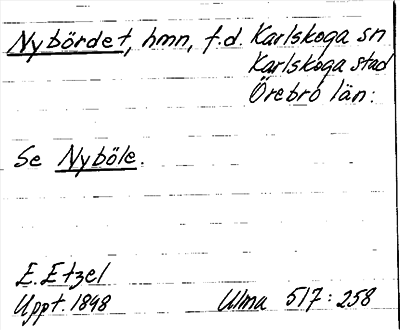 Nybördet, hmn, f.d. Karlskoga sn
Karlskoga stad
Örebro län.
Se Nyböle.
E. Etzel
Uppt. 1898 Ulma 517:258